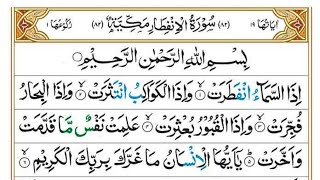 اٰیَاتُهَا ١٩ (٨٢) سُوْرَةُ الْاِنْفِطَارِ مَكِّیَّةٌ (٨٢) رُكُوْعُهَا ١
بِسْمِ اللّٰهِ الرَّحْمٰنِ الرَّحِیْمِ
اِذَا السَّمَآءُ انْفَطَرَتْ ۝١ وَاِذَا الْكَوَاكِبُ انْتَثَرَتْ ۝٢ وَاِذَا الْبِحَارُ
فُجِّرَتْ ۝٣ وَاِذَا الْقُبُوْرُ بُعْثِرَتْ ۝٤ عَلِمَتْ نَفْسٌ مَّا قَدَّمَتْ
وَاَخَّرَتْ ۝٥ یٰۤاَیُّهَا الْاِنْسَانُ مَا غَرَّكَ بِرَبِّكَ الْكَرِیْمِ ۝٦